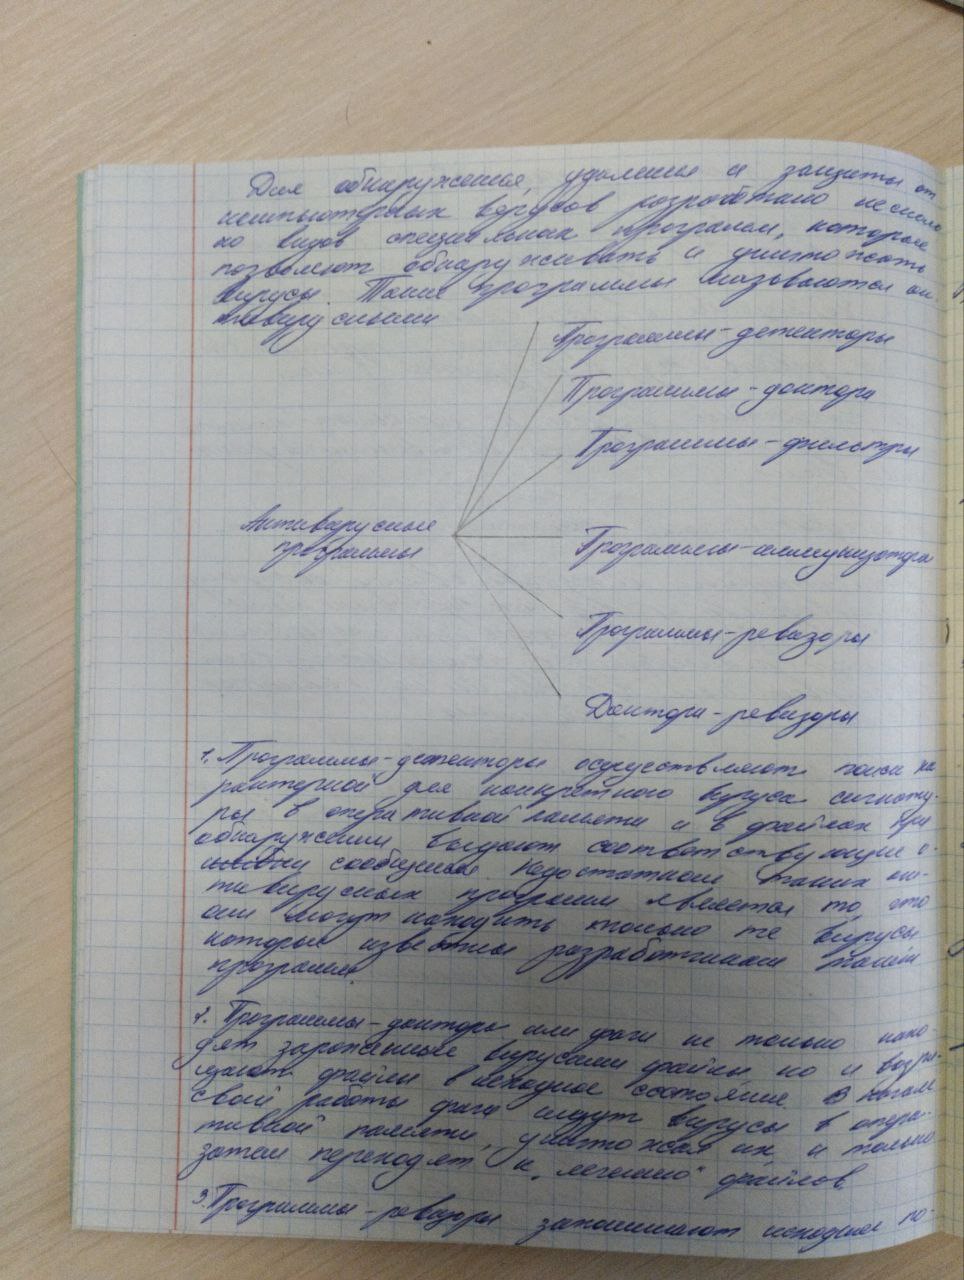 Для обнаружения, удаления и защиты от
компьютерных вирусов разработано несколь
ко видов специальных программ, которые
позволяют обнаруживать и уничтожать
вирусы. Такие программы называются ан
тивирусными
Программы-детекторы
Программы-доктора
Программы-фильтры
Антивирусные
программы
Программы-иммунизаторы
Программы-ревизоры
Доктора-ревизоры
1. Программы-детекторы осуществляют поиск ха
рактерной для конкретного вируса сигнату-
ры в оперативной памяти и в файлах при
обнаружении выдают соответствующие
сообщения. Недостатком таких ан-
тивирусных программ является то, что
они могут находить только те вирусы
которые известны разработчикам таких
программ.
2. Программы-доктора или фаги не только нахо
дят зараженные вирусами файлы но и возвра
щают файлы в исходное состояние. В начале
своей работы фаги ищут вирусы в опера-
тивной памяти, уничтожая их и только
затем переходят к „лечению" файлов
3. Программы-ревизоры запоминают исходное по-